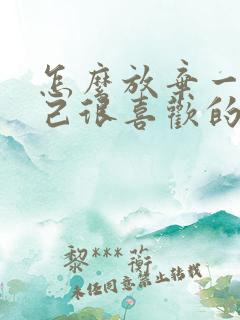 怎麼放棄一
己很喜歡的
黎***蘅
未经同意禁止转载